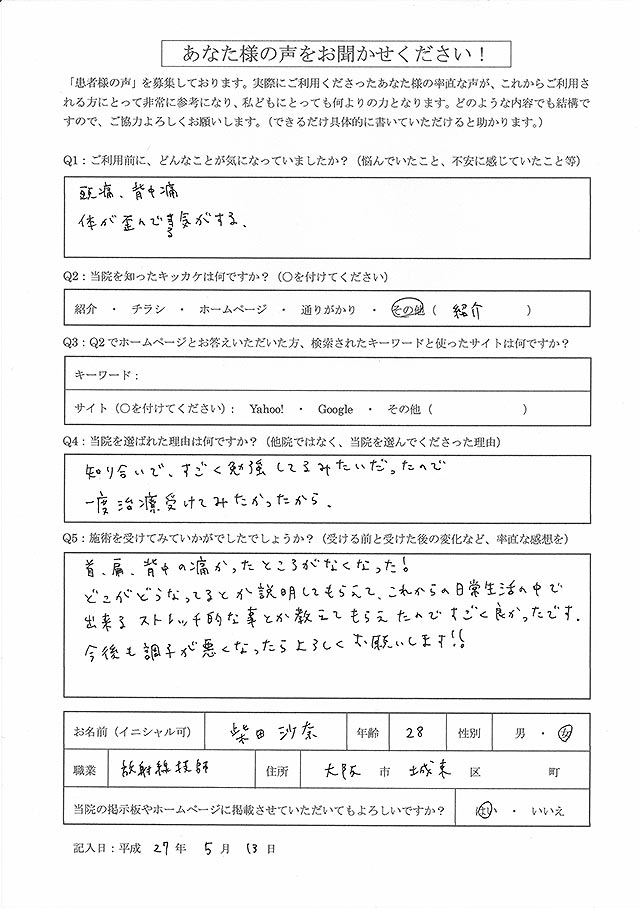 あなた様の声をお聞かせください！
「患者様の声」を募集しております。実際にご利用くださったあなた様の率直な声が、これからご利用さ
れる方にとって非常に参考になり、私どもにとっても何よりの力となります。どのような内容でも結構で
すので、ご協力よろしくお願いします。（できるだけ具体的に書いていただけると助かります。）
Q1：ご利用前に、どんなことが気になっていましたか？（悩んでいたこと、不安に感じていたこと等）
頭痛、背中痛
体が歪んでる気がする、
Q2：当院を知ったキッカケは何ですか？（〇を付けてください）
紹介 ・ チラシ ・ ホームページ ・ 通りがかり ・ その他（ 紹介 ）
Q3：Q2でホームページとお答えいただいた方、検索されたキーワードと使ったサイトは何ですか？
キーワード：
サイト（〇を付けてください）： Yahoo! ・ Google ・ その他（ ）
Q4：当院を選ばれた理由は何ですか？（他院ではなく、当院を選んでくださった理由）
知り合いで、すごく勉強してるみたいだったので
一度治療受けてみたかったから、
Q5：施術を受けてみていかがでしたでしょうか？（受ける前と受けた後の変化など、率直な感想を）
首、肩、背中の痛かったところがなくなった！
どこがどうなってるとか説明してもらえて、これからの日常生活の中で
出来るストレッチ的な事とか教えてもらえたのですごく良かったです.
今後も調子が悪くなったらよろしくお願いします!!
お名前（イニシャル可） 柴田沙奈 年齢 28 性別 男 ・ 女
職業 放射線技師 住所 大阪 市 城東 区 町
当院の掲示板やホームページに掲載させていただいてもよろしいですか？ はい ・ いいえ
記入日：平成 27 年 5 月 13 日